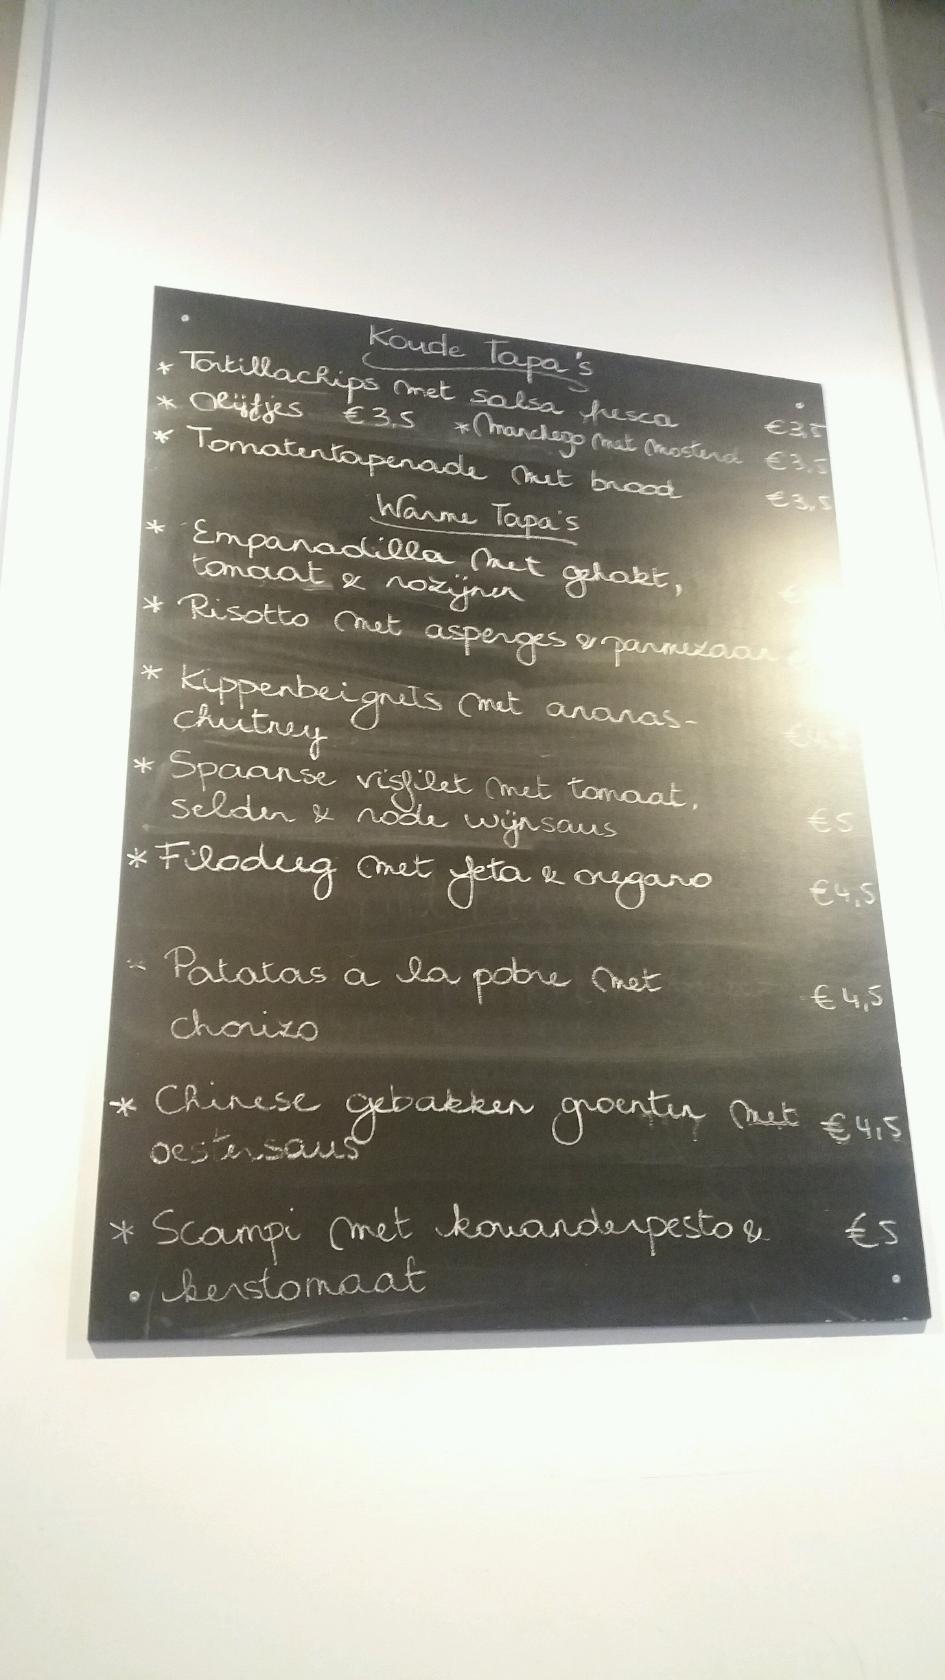 Koude Tapa's
* Tortillachips met salsa fresca €3,5
* Olijfjes €3,5 * Manchego met mosterd €3,5
* Tomatentapenade met brood €3,5
Warme Tapa's
* Empanadilla met gehakt,
tomaat & rozijnen
* Risotto met asperges & parmezaan
* Kippenbeignets met ananas-
chutney
* Spaanse visfilet met tomaat,
selder & rode wijnsaus €5
* Filodeeg met feta & oregano €4,5
* Patatas a la pobre met €4,5
chorizo
* Chinese gebakken groenten met €4,5
oestersaus
* Scampi met korianderpesto & €5
kerstomaat